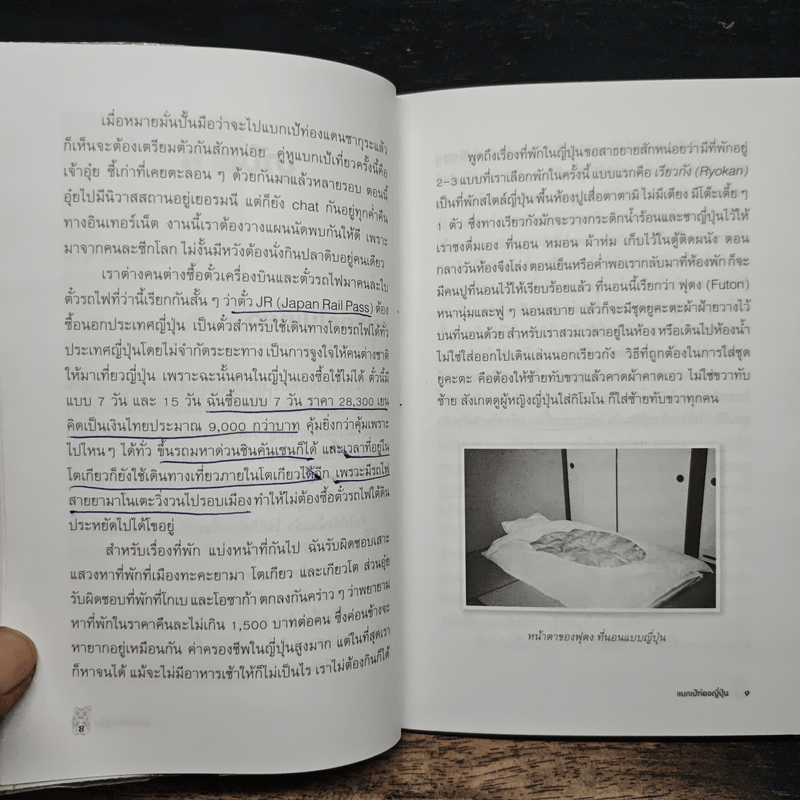 เมื่อหมายมั่นปั้นมือว่าจะไปแบกเป้ท่องแดนซากุระแล้ว
ก็เห็นจะต้องเตรียมตัวกันสักหน่อย คู่หูแบกเป้เที่ยวครั้งนี้คือ
เจ้าอุ๋ย ขี้เก่าที่เคยตะลอน ๆ ด้วยกันมาแล้วหลายรอบ ตอนนี้
อุ๋ยไปมีนิวาสสถานอยู่เยอรมนี แต่ก็ยัง chat กันอยู่ทุกค่ำคืน
ทางอินเทอร์เน็ต งานนี้เราต้องวางแผนนัดพบกันให้ดี เพราะ
มาจากคนละซีกโลก ไม่งั้นมีหวังต้องนั่งกินปลาดิบอยู่คนเดียว
เราต่างคนต่างซื้อตั๋วเครื่องบินและตั๋วรถไฟมาคนละใบ
ตั๋วรถไฟที่ว่านี้เรียกกันสั้น ๆ ว่าตั๋ว JR (Japan Rail Pass) ต้อง
ซื้อนอกประเทศญี่ปุ่น เป็นตั๋วสำหรับใช้เดินทางโดยรถไฟได้ทั่ว
ประเทศญี่ปุ่นโดยไม่จำกัดระยะทาง เป็นการจูงใจให้คนต่างชาติ
ให้มาเที่ยวญี่ปุ่น เพราะฉะนั้นคนในญี่ปุ่นเองซื้อใช้ไม่ได้ ตั๋วนี้มี
แบบ 7 วัน และ 15 วัน ฉันซื้อแบบ 7 วัน ราคา 28,300 เยน
คิดเป็นเงินไทยประมาณ 9,000 กว่าบาท คุ้มยิ่งกว่าคุ้มเพราะ
ไปไหนๆ ได้ทั่ว ขึ้นรถมหาด่วนชินคันเซนก็ได้ และเวลาที่อยู่ใน
โตเกียวก็ยังใช้เดินทางเที่ยวภายในโตเกียวได้อีก เพราะมีรถไฟ
สายยามาโนเตะวิ่งวนไปรอบเมือง ทำให้ไม่ต้องซื้อตั๋วรถไฟใต้ดิน
ประหยัดไปได้โขอยู่
สำหรับเรื่องที่พัก แบ่งหน้าที่กันไป ฉันรับผิดชอบเสาะ
แสวงหาที่พักที่เมืองทะคะยามา โตเกียว และเกียวโต ส่วนอุ๋ย
รับผิดชอบที่พักที่โกเบและโอซาก้า ตกลงกันคร่าว ๆ ว่าพยายาม
หาที่พักในราคาคืนละไม่เกิน 1,500 บาทต่อคน ซึ่งค่อนข้างจะ
หายากอยู่เหมือนกัน ค่าครองชีพในญี่ปุ่นสูงมาก แต่ในที่สุดเรา
ก็หาจนได้ แม้จะไม่มีอาหารเช้าให้ก็ไม่เป็นไร เราไม่ต้องกินก็ได้
8
พูดถึงเรื่องที่พักในญี่ปุ่นขอสาธยายสักหน่อยว่ามีที่พักอยู่
2-3 แบบที่เราเลือกพักในครั้งนี้ แบบแรกคือ เรียวกัง (Ryokan)
เป็นที่พักสไตล์ญี่ปุ่น พื้นห้องปูเสื่อตาตามิ ไม่มีเตียง มีโต๊ะเตี้ย ๆ
1 ตัว ซึ่งทางเรียวกังมักจะวางกระติกน้ำร้อนและชาญี่ปุ่นไว้ให้
เราชงดื่มเอง ที่นอน หมอน ผ้าห่ม เก็บไว้ในตู้ติดผนัง ตอน
กลางวันห้องจึงโล่ง ตอนเย็นหรือค่ำพอเรากลับมาที่ห้องพัก ก็จะ
มีคนปูที่นอนไว้ให้เรียบร้อยแล้ว ที่นอนนี้เรียกว่า ฟุตง (Futon)
หนานุ่มและฟู ๆ นอนสบาย แล้วก็จะมีชุดยูคะตะผ้าฝ้ายวางไว้
บนที่นอนด้วย สำหรับเราสวมเวลาอยู่ในห้อง หรือเดินไปห้องน้ำ
ไม่ใช่ใส่ออกไปเดินเล่นนอกเรียวกัง วิธีที่ถูกต้องในการใส่ชุด
ยูคะตะ คือต้องให้ซ้ายทับขวาแล้วคาดผ้าคาดเอว ไม่ใช่ขวาทับ
ซ้าย สังเกตดูผู้หญิงญี่ปุ่นใส่กิโมโน ก็ใส่ซ้ายทับขวาทุกคน
หน้าตาของฟุตง ที่นอนแบบญี่ปุ่น
แบกเป้ท่องญี่ปุ่น 9